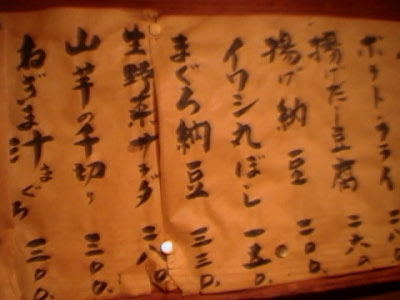 ポテトフライ 二八〇.
揚げだし豆腐 二六〇.
揚げ納豆 二〇〇.
イワシ丸ぼし 一五〇.
まぐろ納豆 三三〇.
生野菜サラダ 二八〇.
山芋の千切り 三〇〇.
ねぎま汁まぐろ 三〇〇.